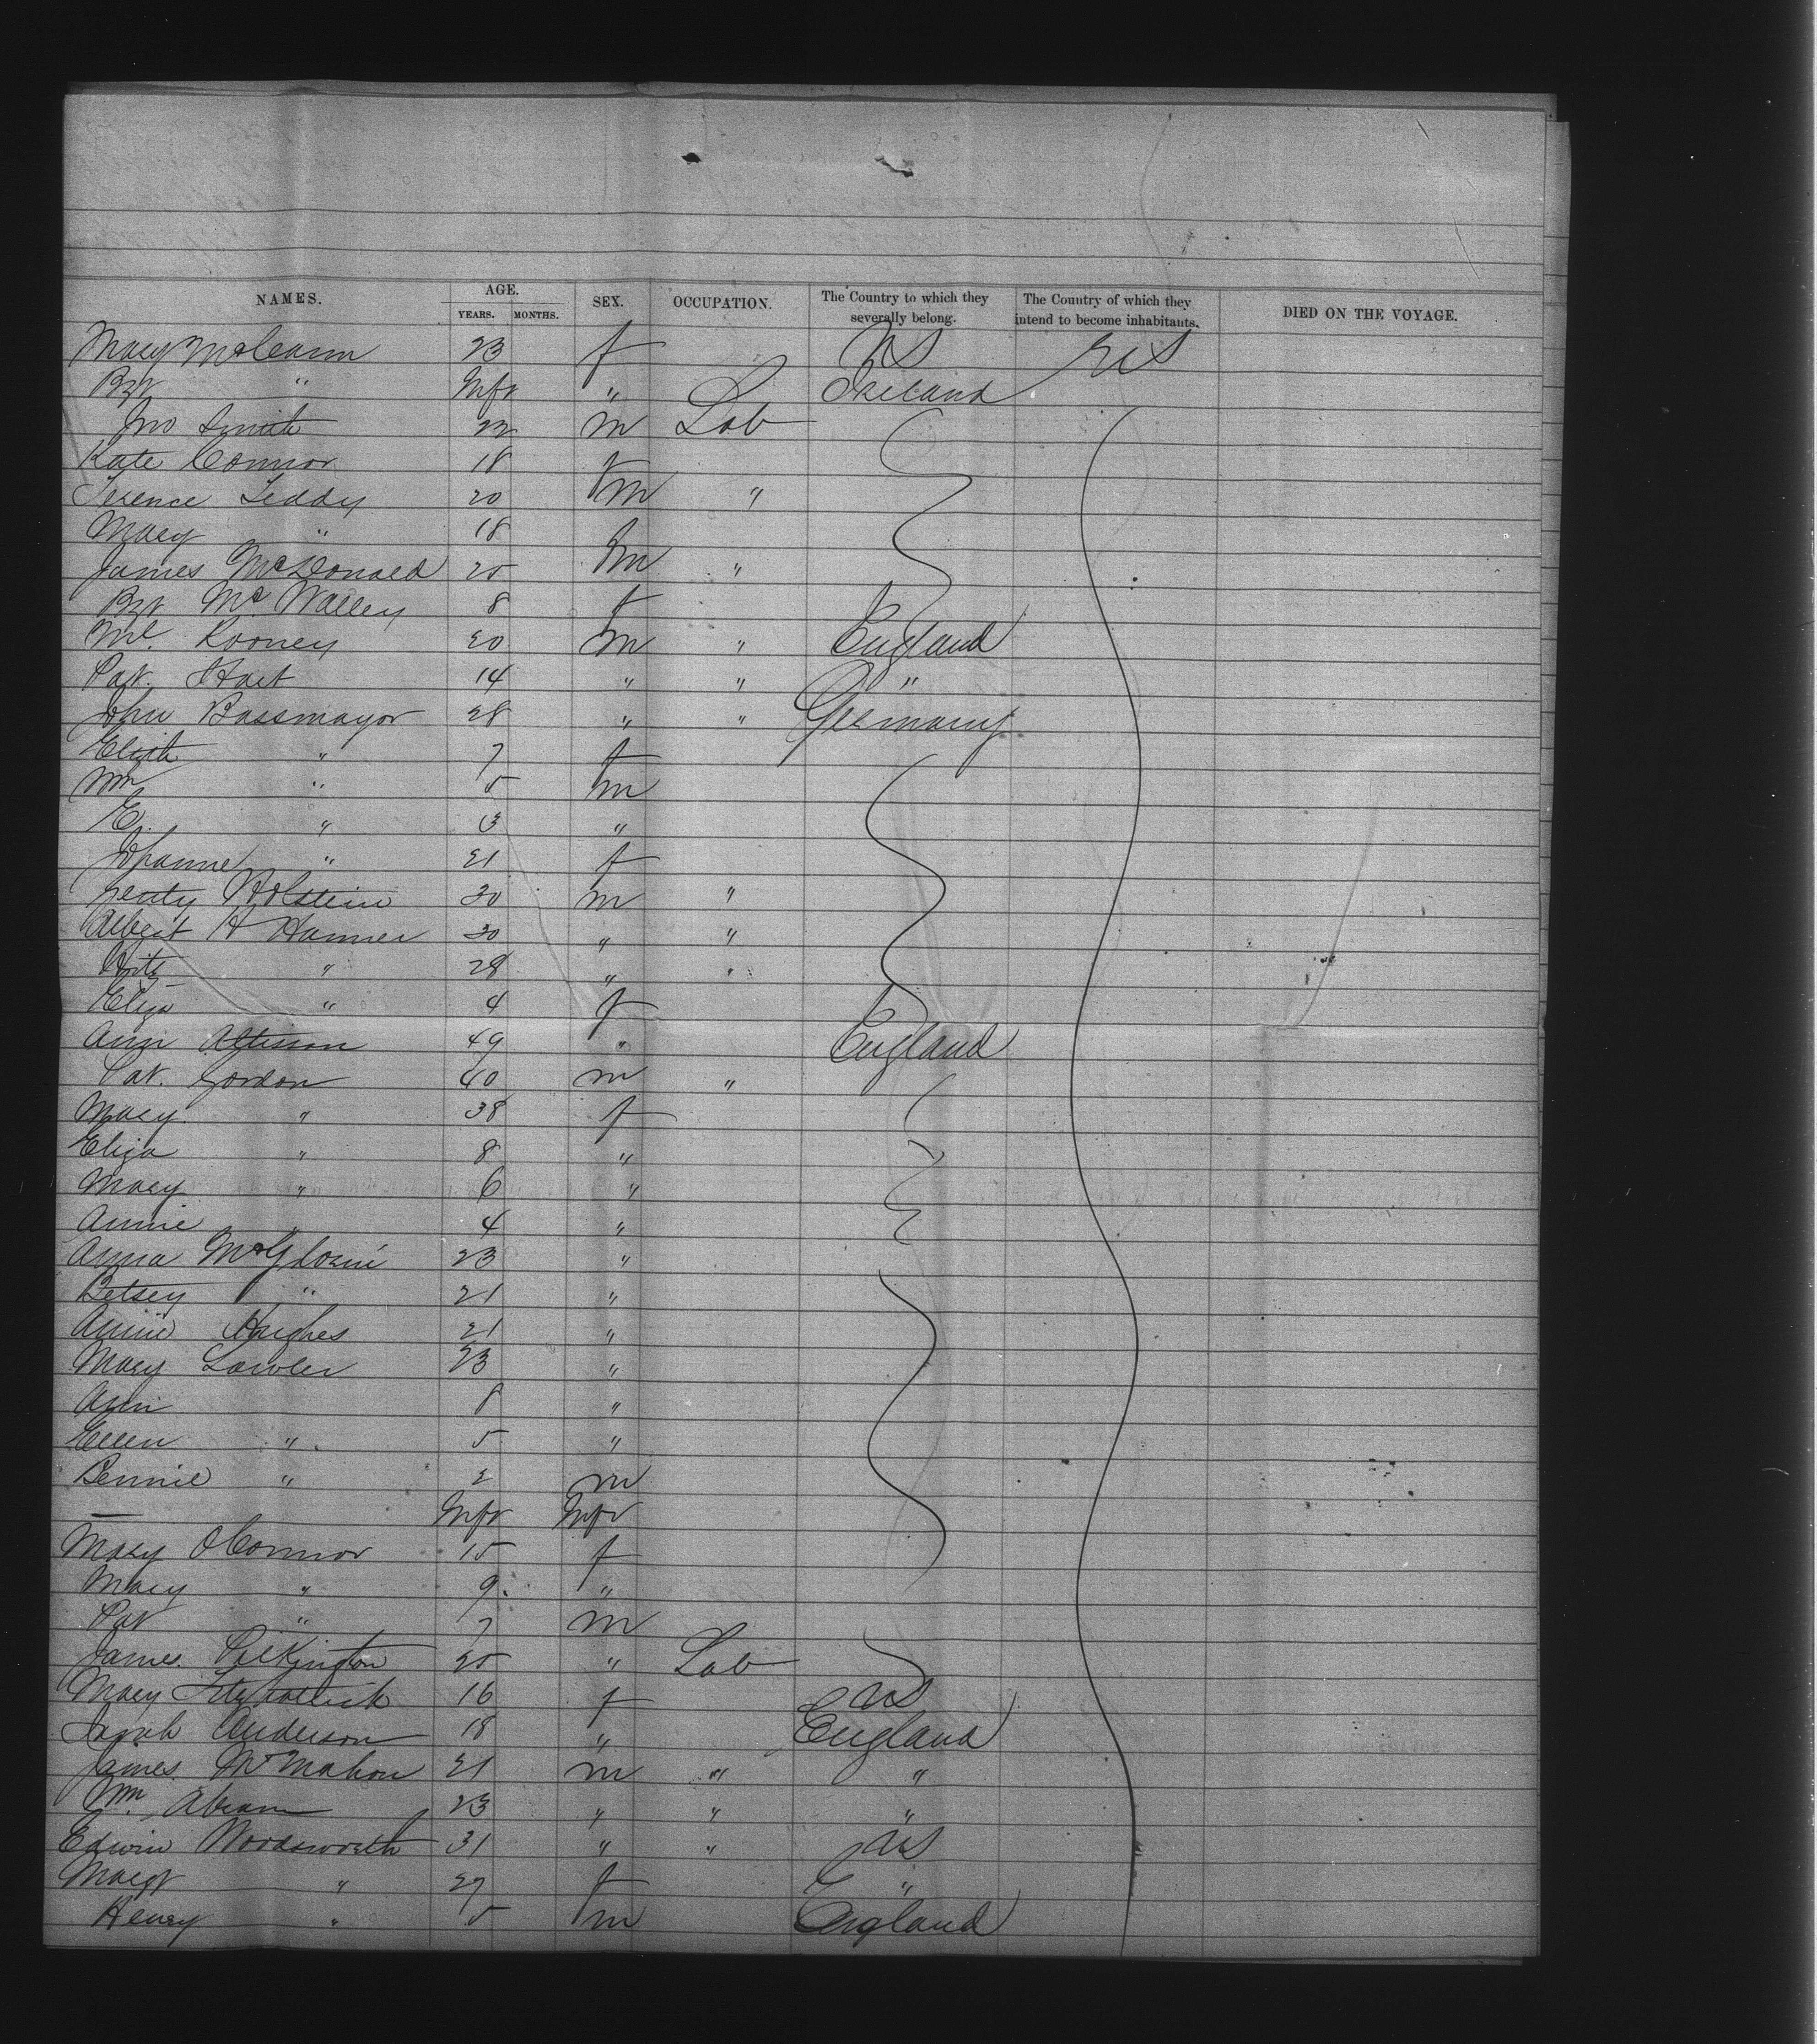 NAMES. AGE. SEX. OCCUPATION. The Country to which they severally belong. The Country of which they intend to become inhabitants. DIED ON THE VOYAGE.
YEARS. MONTHS.
Mary McCann 23 f US US
Bgt " Inft " Ireland
Jno Smith 22 m Lab
Kate Connor 18 f
Terence Leddy 20 m "
Mary " 18 f
James McDonald 25 m "
Bgt McNalley 8 f
Ml. Rooney 20 m " England
Pat. Hart 14 " " "
John Bassmayor 28 " " Germany
Elizth " 7 f
Wm " 5 m
E. " 3 "
Johanne " 21 f
Holstein 30 m "
Albert H Hanner 30 " "
Fritz " 28 " "
Eliza " 4 f
Ann Attison 49 " England
Pat. Gordon 40 m "
Mary " 38 f
Eliza " 8 "
Mary " 6 "
Annie " 4 "
Anna McGloin 23 "
Betsey " 21 "
Annie Hughes 21 "
Mary Lawler 23 "
Ann 8 "
Ellen " 5 "
Bennie " 2 m
— Inft Inft
Mary OConnor 15 f
Mary " 9 "
Pat " 7 m
James Pilkington 25 " Lab
Mary Fitzpatrick 16 f US
Sarah Anderson 18 " England
James McMahon 21 m " "
Wm. Abram 23 " " "
Edwin Wordsworth 31 " " US
Margt " 27 f "
Henry " 5 m England